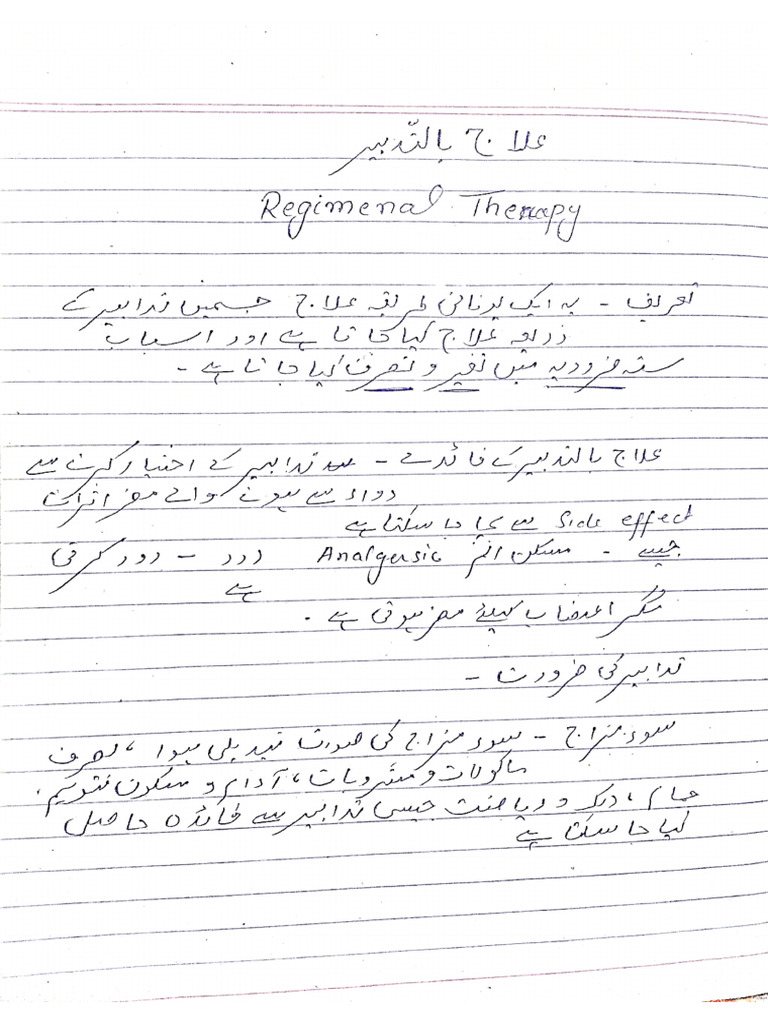 علاج بالتّدبیر
Regimenal Therapy
تعریف - یہ ایک یونانی طریقہ علاج جسمیں تدابیر کے
ذریعہ علاج کیا جاتا ہے اور اسباب
ستہ ضروریہ میں تغیر و تصرف کیا جاتا ہے -
علاج بالتدبیر کے فائدے - تدابیر کے اختیار کرنے سے
دواء سے ہونے والے مضر اثرات
Side effect سے بچا جا سکتا ہے
جیسے - مسکن الم Analgersic درد - دور کرتی
ہے
مگر اعصاب کیلئے مضر ہوتی ہے .
تدابیر کی ضرورت -
سوء مزاج - سوء مزاج کی صورت تبدیلی ہوا ، تصرف
ماکولات و مشروبات ، آرام و سکون تنویم ،
حمام ، دلک و ریاضت جیسی تدابیر سے فائدہ حاصل
کیا جا سکتا ہے